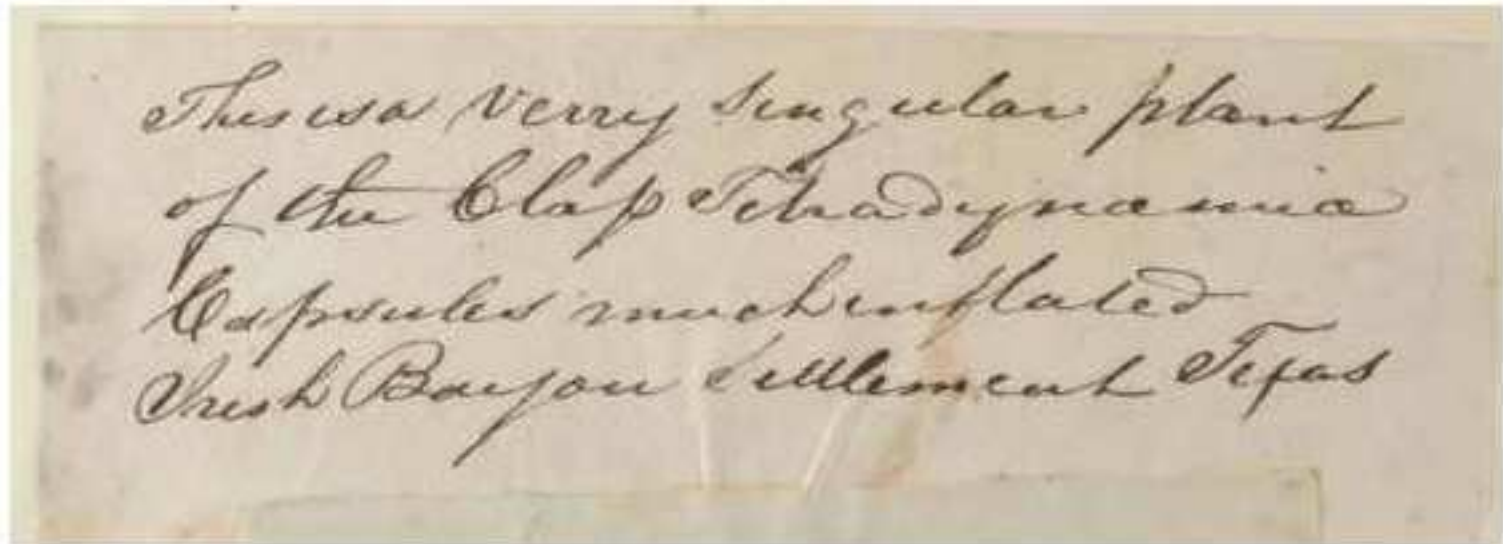 This is a verry singular plant
of the Claſs Tetradynamia
Capsules much inflated
Irish Bayou Settlement Texas